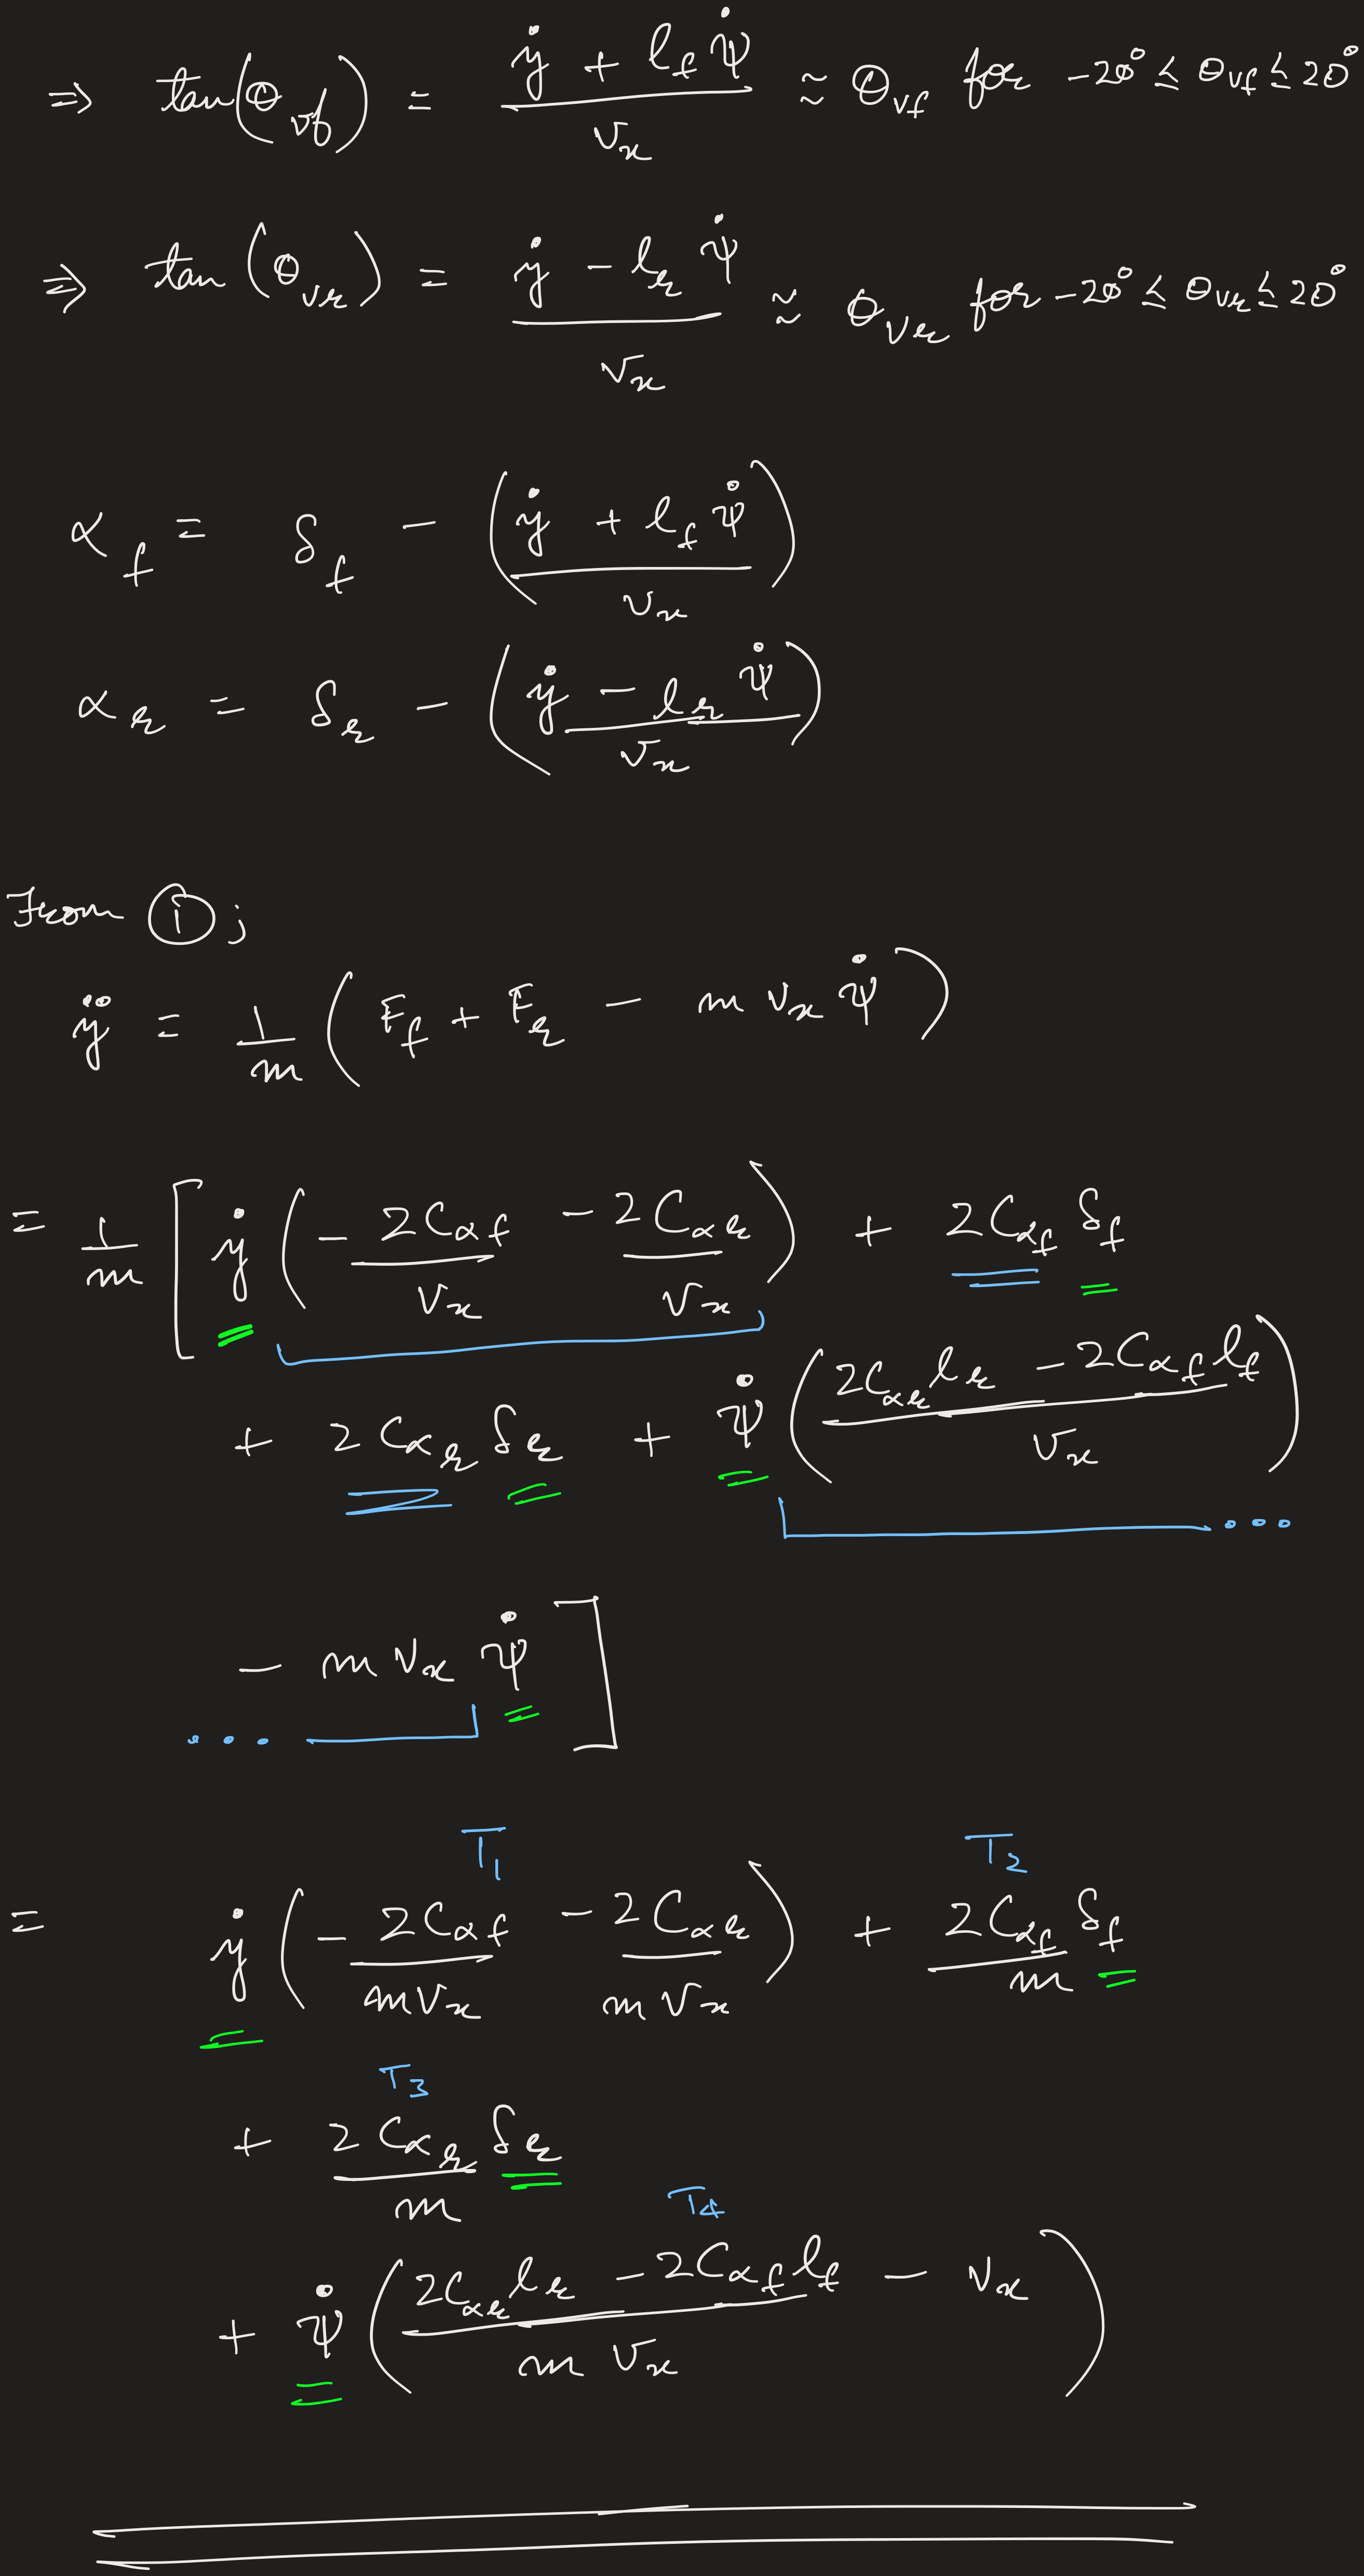 ⇒ tan(θ_vf) = (ẏ + l_f ψ̇)/v_x ≈ θ_vf for -20° ≤ θ_vf ≤ 20°
⇒ tan(θ_vr) = (ẏ - l_r ψ̇)/v_x ≈ θ_vr for -20° ≤ θ_vr ≤ 20°
α_f = δ_f - ((ẏ + l_f ψ̇)/v_x)
α_r = δ_r - ((ẏ - l_r ψ̇)/v_x)
From ①;
ÿ = 1/m (F_f + F_r - m v_x ψ̇)
= 1/m [ẏ (-2C_αf/v_x - 2C_αr/v_x) + 2C_αf δ_f
+ 2C_αr δ_r + ψ̇ ((2C_αr l_r - 2C_αf l_f)/v_x)
...
- m v_x ψ̇]
...
T1 T2
= ẏ (-2C_αf/(m v_x) - 2C_αr/(m v_x)) + (2C_αf/m) δ_f
T3
+ (2C_αr/m) δ_r
T4
+ ψ̇ ((2C_αr l_r - 2C_αf l_f)/(m v_x) - v_x)